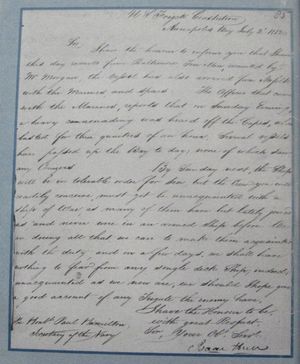 U. S. Frigate Constitution
Annapolis Bay July 2d 1812
Sir,
I have the honor to inform you that I have
this day received from Baltimore
Mr Morgan, the vessel had also arrived from Norfolk
with the Marines and spars. The Officer that came
with the Marines, reports that on Sunday Evening
a heavy cannonading was heard off the Capes, which
lasted for three quarters of an hour. Several vessels
have passed up the Bay to day, none of which saw
any Cruizers. By Sunday next, the Ship
will be in tolerable order for Sea, but the Crew you will
readily conceive, must yet be unacquainted with a
Ship of War, as many of them have but lately joined
us and never were in an armed Ship before. We
are doing all that we can to make them acquainted
with the duty, and in a few days, we shall have
nothing to fear from any single deck Ship; indeed,
unacquainted as we now are, we should I hope give
a good account of any Frigate the enemy have.
I have the Honour to be,
with great Respect,
Sir, Your Obt. Servt.
Isaac Hull
The Honbl. Paul Hamilton
Secretary of the Navy